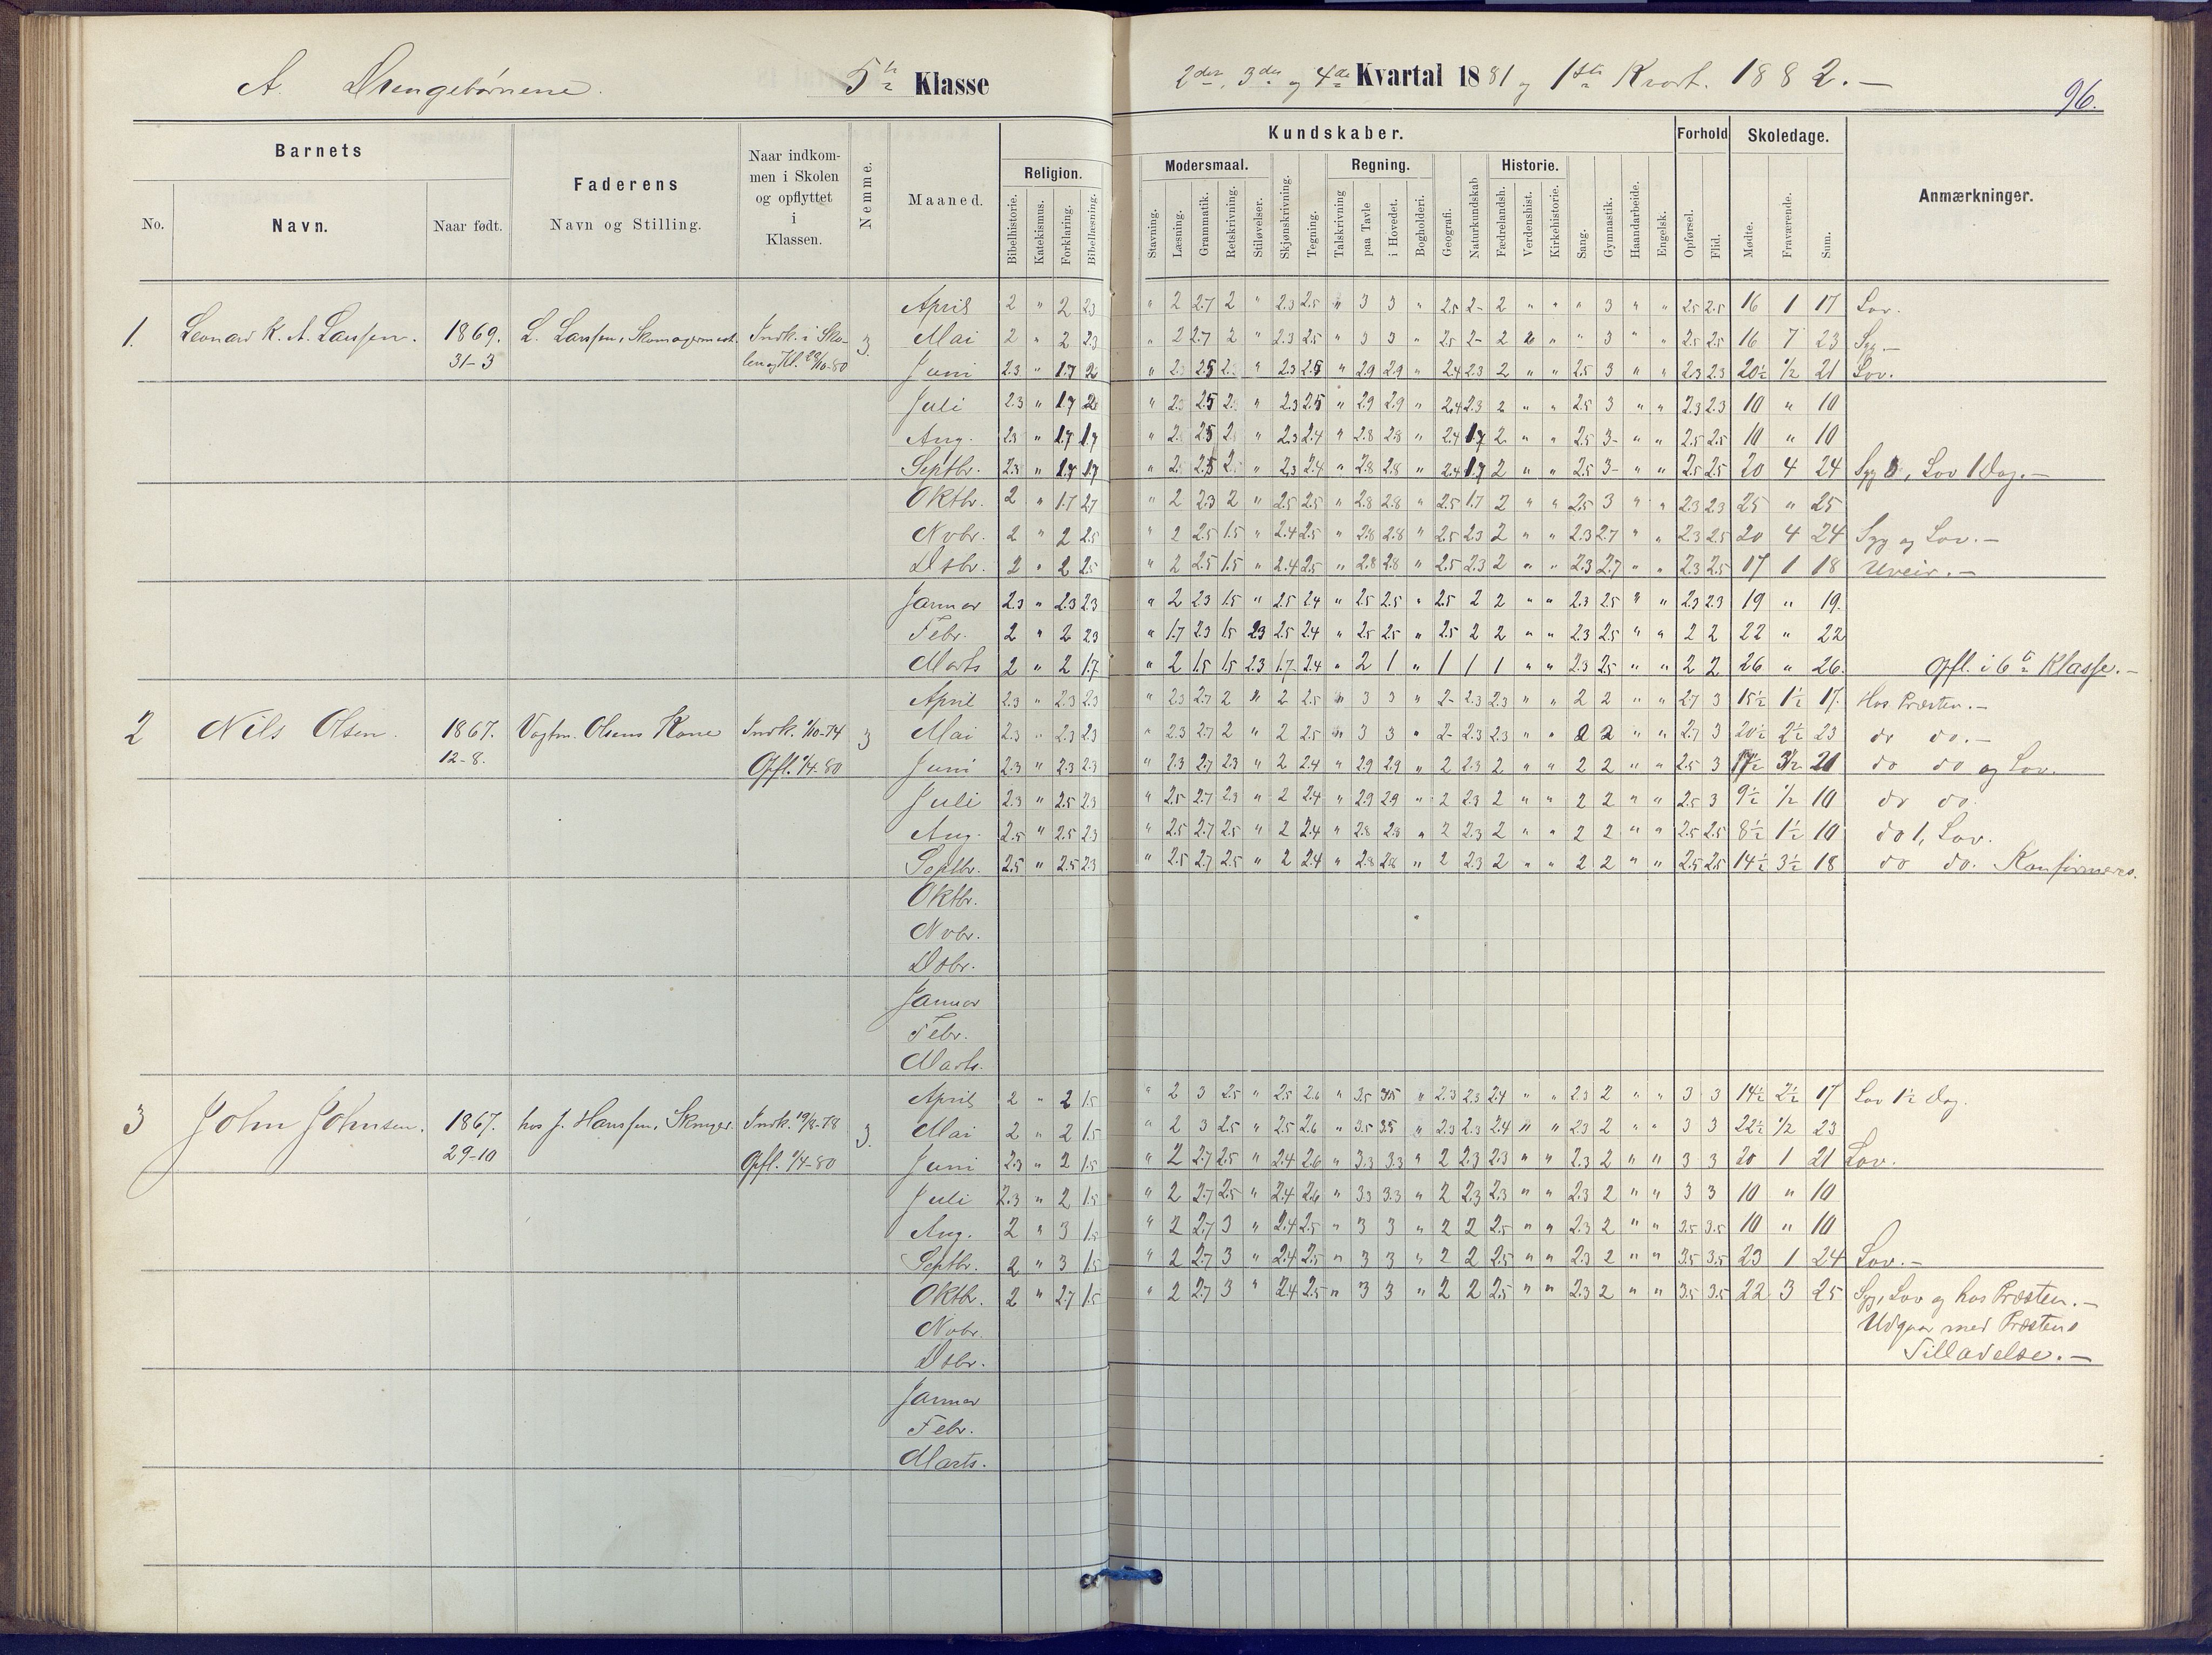 A. Drengebørnene. 5te Klasse 2det, 3die og 4de Kvartal 1881 og 1ste Kvart. 1882.–
96.
Barnets Faderens Naar indkommen i Skolen og opflyttet i Klassen. Nemme. Maaned. Religion. Kundskaber. Forhold Skoledage. Anmærkninger.
Modersmaal. Regning. Historie.
No. Navn. Naar født. Navn og Stilling.
Bibelhistorie. Katekismus. Forklaring. Bibellæsning. Stavning. Læsning. Grammatik. Retskrivning. Stiløvelser. Skjønskrivning. Tegning. Talskrivning paa Tavle i Hovedet. Bogholderi. Geografi. Naturkundskab Fædrelandsh. Verdenshist. Kirkehistorie. Sang. Gymnastik. Haandarbeide. Engelsk. Opførsel. Flid. Mødte. Fraværende. Sum.
April 2 " 2 2.3 " 2 2.7 2 " 2.3 2.5 " 3 3 " 2.5 2- 2 " " " 3 " " 2.5 2.5 16 1 17 Lov.
1. Leonard K. A. Larssen. 1869. L. Larssen, Skomagermest. Indk. i Sko- 3. Mai 2 " 2 2.3 " 2 2.7 2 " 2.3 2.5 " 3 3 " 2.5 2- 2 " " 3 " " 2.5 2.5 16 7 23 Syg.–
31-3 len og Kl. 29/10-80 Juni 2.3 " 1.7 2 " 2.5 " 2.3 2.5 " 2.9 2.9 " 2.4 2.3 2 " " 2.5 3 " " 2.3 2.3 20½ ½ 21 Lov.
Juli 2.3 " 1.7 2 " 2.5 " 2.3 2.5 " 2.9 2.9 " 2.4 2.3 2 " " 2.5 3 " " 2.3 2.3 10 " 10
Aug. 2.3 " 1.7 1.7 " 2.5 " 2.3 2.4 " 2.8 2.8 " 2.4 1.7 2 " " 2.5 3- " " 2.5 2.5 10 " 10
Septbr. 2.3 " 1.7 1.7 " 2.5 " 2.3 2.4 " 2.8 2.8 " 2.4 1.7 2 " " 2.5 3- " " 2.5 2.5 20 4 24 Syg , Lov 1 Dag.–
Oktbr. 2 " 1.7 2.7 " 2 2.3 2 " 2.5 2.5 " 2.8 2.8 " 2.5 1.7 2 " " 2.5 3 " " 2.3 2.3 25 " 25
Novbr. 2 " 2 2.5 " 2 2.5 1.5 " 2.4 2.5 " 2.8 2.8 " 2.5 2.3 2 " " 2.3 2.7 " " 2.3 2.5 20 4 24 Syg og Lov.–
Dsbr. 2 " 2 2.5 " 2 2.5 1.5 " 2.4 2.5 " 2.8 2.8 " 2.5 2.3 2 " " 2.3 2.7 " " 2.3 2.5 17 1 18 Uveir.–
Januar 2.3 " 2.3 2.3 " 2 2.3 1.5 " 2.5 2.4 " 2.5 2.5 " 2.5 2 2 " " 2.3 2.5 " " 2.3 2.3 19 " 19.
Febr. 2 " 2 2.3 " 1.7 2.3 1.5 2.3 2.5 2.4 " 2.5 2.5 " 2.5 2 2 " " 2.3 2.5 " " 2 2 22 " 22
Marts 2 " 2 1.7 " 2 1.5 1.5 2.3 1.7 2.4 " 2 1 " 1 1 1 " " 2.3 2.5 " " 2 2 26 " 26. Opfl. i 6te Klasse.–
April 2.3 " 2.3 2.3 " 2.3 2.7 2 " 2 2.5 " 3 3 " 2- 2.3 2.3 " " 2 2 " " 2.7 3 15½ 1½ 17. Hos Præsten.–
2 Nils Olsen. 1867. Vagtm. Olsens Kone Indk. 1/10-74 3 Mai 2.3 " 2.3 2.3 " 2.3 2.7 2 " 2 2.5 " 3 3 " 2- 2.3 2.3 " " 2 2 " " 2.7 3 20½ 2½ 23 do do.–
12-8. Opfl. 1/4-80 Juni 2.3 " 2.3 2.3 " 2.3 2.7 2.3 " 2 2.4 " 2.9 2.9 " 2 2.3 2 " " 2 2 " " 2.5 3 17½ 3½ 21 do do og Lov.
Juli 2.3 " 2.5 2.3 " 2.5 2.7 2.3 " 2 2.4 " 2.9 2.9 " 2 2.3 2 " " 2 2 " " 2.5 3 9½ ½ 10 do do.
Aug. 2.5 " 2.5 2.3 " 2.5 2.7 2.5 " 2 2.4 " 2.8 2.8 " 2 2.3 2 " " 2 2 " " 2.5 2.5 8½ 1½ 10 do 1, Lov.
Septbr. 2.5 " 2.5 2.3 " 2.5 2.7 2.5 " 2 2.4 " 2.8 2.8 " 2 2.3 2 " " 2 2 " " 2.5 2.5 14½ 3½ 18 do do. Konfirmeres.
Oktbr.
Novbr.
Dsbr.
Januar
Febr.
Marts.
April 2 " 2 1.5 " 2 3 2.5 " 2.5 2.6 " 3.5 3.5 " 2.3 2.3 2.4 " " 2.3 2 " " 3 3 14½ 2½ 17 Lov 1½ Dag.
3 John Johnsen. 1867. hos J. Hanssen, Skruger. Indk. 19/8-78 3. Mai 2 " 2 1.5 " 2 3 2.5 " 2.5 2.6 " 3.5 3.5 " 2.3 2.3 2.4 " " 2.3 2 " " 3 3 22½ ½ 23
29-10 Opfl. 1/4-80 Juni 2.3 " 2 1.5 " 2 2.7 2.5 " 2.4 2.6 " 3.3 3.3 " 2 2.3 2.3 " " 2.3 2 " " 3 3 20 1 21 Lov.
Juli 2.3 " 2 1.5 " 2 2.7 2.5 " 2.4 2.6 " 3.3 3.3 " 2 2.3 2.3 " " 2.3 2 " " 3 3 10 " 10
Aug. 2 " 3 1.5 " 2 2.7 3 " 2.4 2.5 " 3 3 " 2 2 2.5 " " 2.3 2 " " 3.5 3.5 10 " 10
Septbr. 2 " 3 1.5 " 2 2.7 3 " 2.4 2.5 " 3 3 " 2 2 2.5 " " 2.3 2 " " 3.5 3.5 23 1 24 Lov.–
Oktbr. 2 " 2.7 1.5 " 2 2.7 3 " 2.4 2.5 " 3 3 " 2 2 2.5 " " 2.3 2 " " 3.5 3.5 22 3 25 Syg, Lov og hos Præsten.–
Novbr. Udgaar med Præstens
Dsbr. Tilladelse.–
Januar
Febr.
Marts.